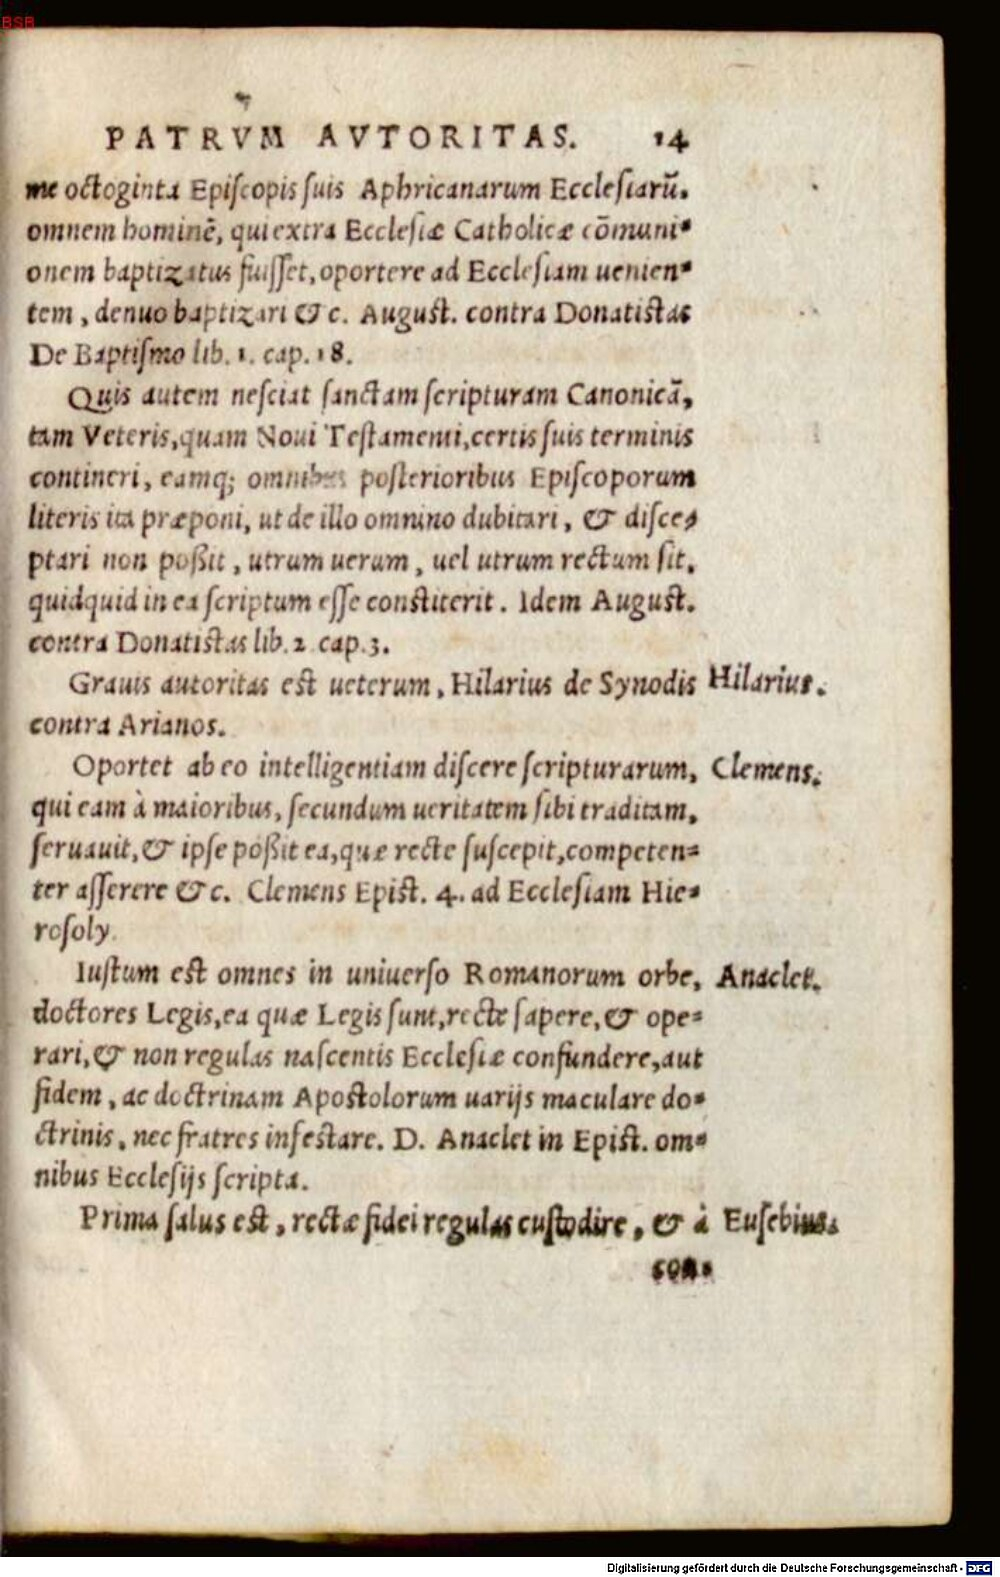 BSB
PATRVM AVTORITAS. 14
me octoginta Episcopis suis Aphricanarum Ecclesiarũ.
omnem hominẽ, qui extra Ecclesiæ Catholicæ cõmuni-
onem baptizatus fuisset, oportere ad Ecclesiam uenien-
tem, denuo baptizari &c. August. contra Donatistas
De Baptismo lib. 1. cap. 18.
Quis autem nesciat sanctam scripturam Canonicã,
tam Veteris, quam Noui Testamenti, certis suis terminis
contineri, eamq; omnibus posterioribus Episcoporum
literis ita præponi, ut de illo omnino dubitari, & disce-
ptari non poßit, utrum uerum, uel utrum rectum sit.
quidquid in ea scriptum esse constiterit. Idem August.
contra Donatistas lib. 2 cap. 3.
Grauis autoritas est ueterum, Hilarius de Synodis Hilarius.
contra Arianos.
Oportet ab eo intelligentiam discere scripturarum, Clemens.
qui eam à maioribus, secundum ueritatem sibi traditam,
seruauit, & ipse poßit ea, quæ recte suscepit, competen-
ter asserere &c. Clemens Epist. 4. ad Ecclesiam Hie-
rosoly.
Iustum est omnes in uniuerso Romanorum orbe, Anaclet.
doctores Legis, ea quæ Legis sunt, recte sapere, & ope-
rari, & non regulas nascentis Ecclesiæ confundere, aut
fidem, ac doctrinam Apostolorum uarijs maculare do-
ctrinis, nec fratres infestare. D. Anaclet in Epist. om-
nibus Ecclesijs scripta.
Prima salus est, rectæ fidei regulas custodire, & à Eusebius.
con-
Digitalisierung gefördert durch die Deutsche Forschungsgemeinschaft - DFG